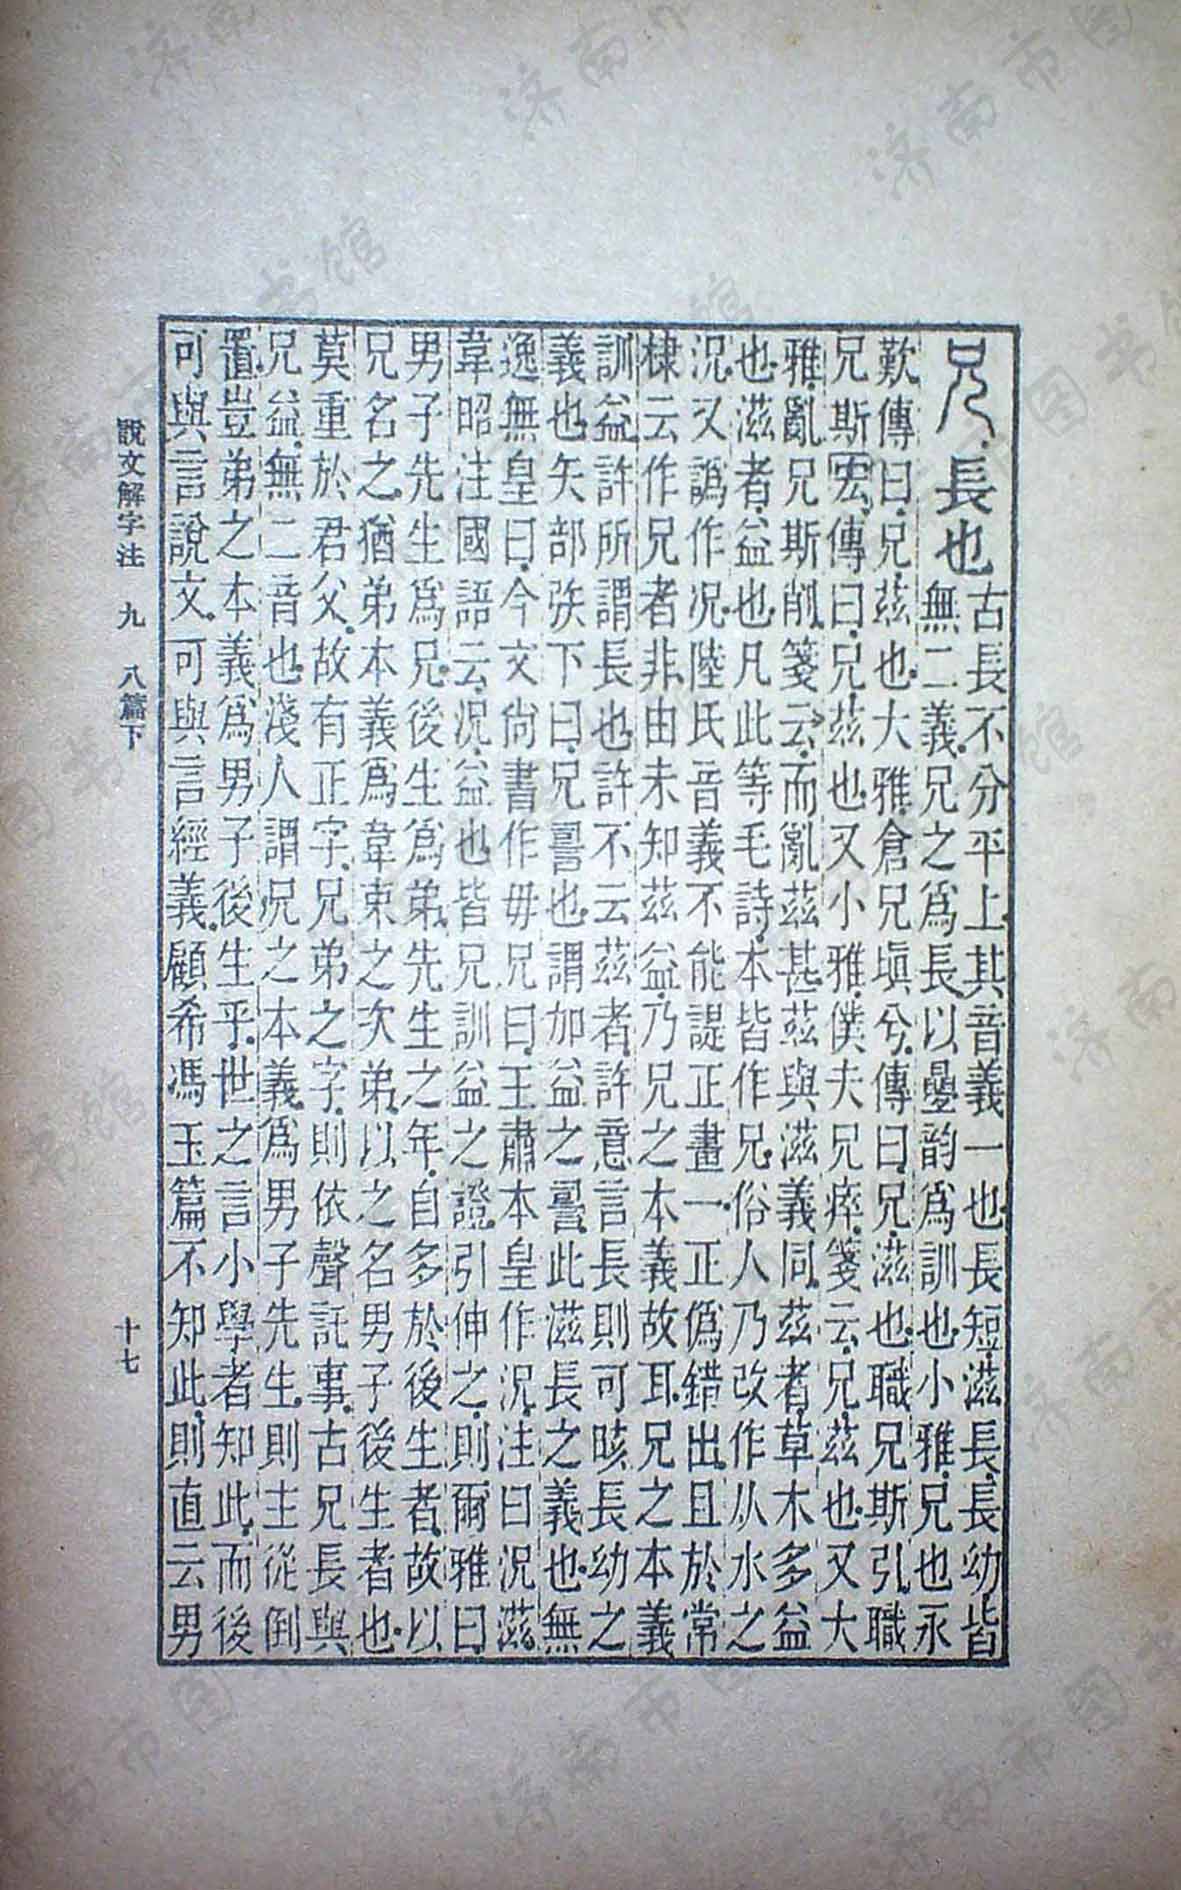 兄長也
古長不分平上其音義一也長短滋長長幼皆
無二義兄之爲長以曡韵爲訓也小雅兄也永
歎傳曰兄茲也大雅倉兄塡兮傳曰兄滋也職兄斯引職
兄斯宏傳曰兄茲也又小雅僕夫兄瘁箋云兄茲也又大
雅亂兄斯削箋云而亂茲甚茲與滋義同茲者草木多益
也滋者益也凡此等毛詩本皆作兄俗人乃改作从水之
況又譌作况陸氏音義不能諟正畫一正僞錯出且於常
棣云作兄者非由未知茲益乃兄之本義故耳兄之本義
訓益許所謂長也許不云茲者許意言長則可晐長幼之
義也矢部矤下曰兄䛐也謂加益之䛐此滋長之義也無
逸無皇曰今文尙書作毋兄曰王肅本皇作況注曰況滋
韋昭注國語云況益也皆兄訓益之證引伸之則爾雅曰
男子先生爲兄後生爲弟先生之年自多於後生者故以
兄名之猶弟本義爲韋束之次弟以之名男子後生者也
莫重於君父故有正字兄弟之字則依聲託事古兄長與
兄益無二音也淺人謂兄之本義爲男子先生則主從倒
置豈弟之本義爲男子後生乎世之言小學者知此而後
可與言說文可與言經義顧希馮玉篇不知此則直云男
說文解字注 九 八篇下 十七
济南市图书馆